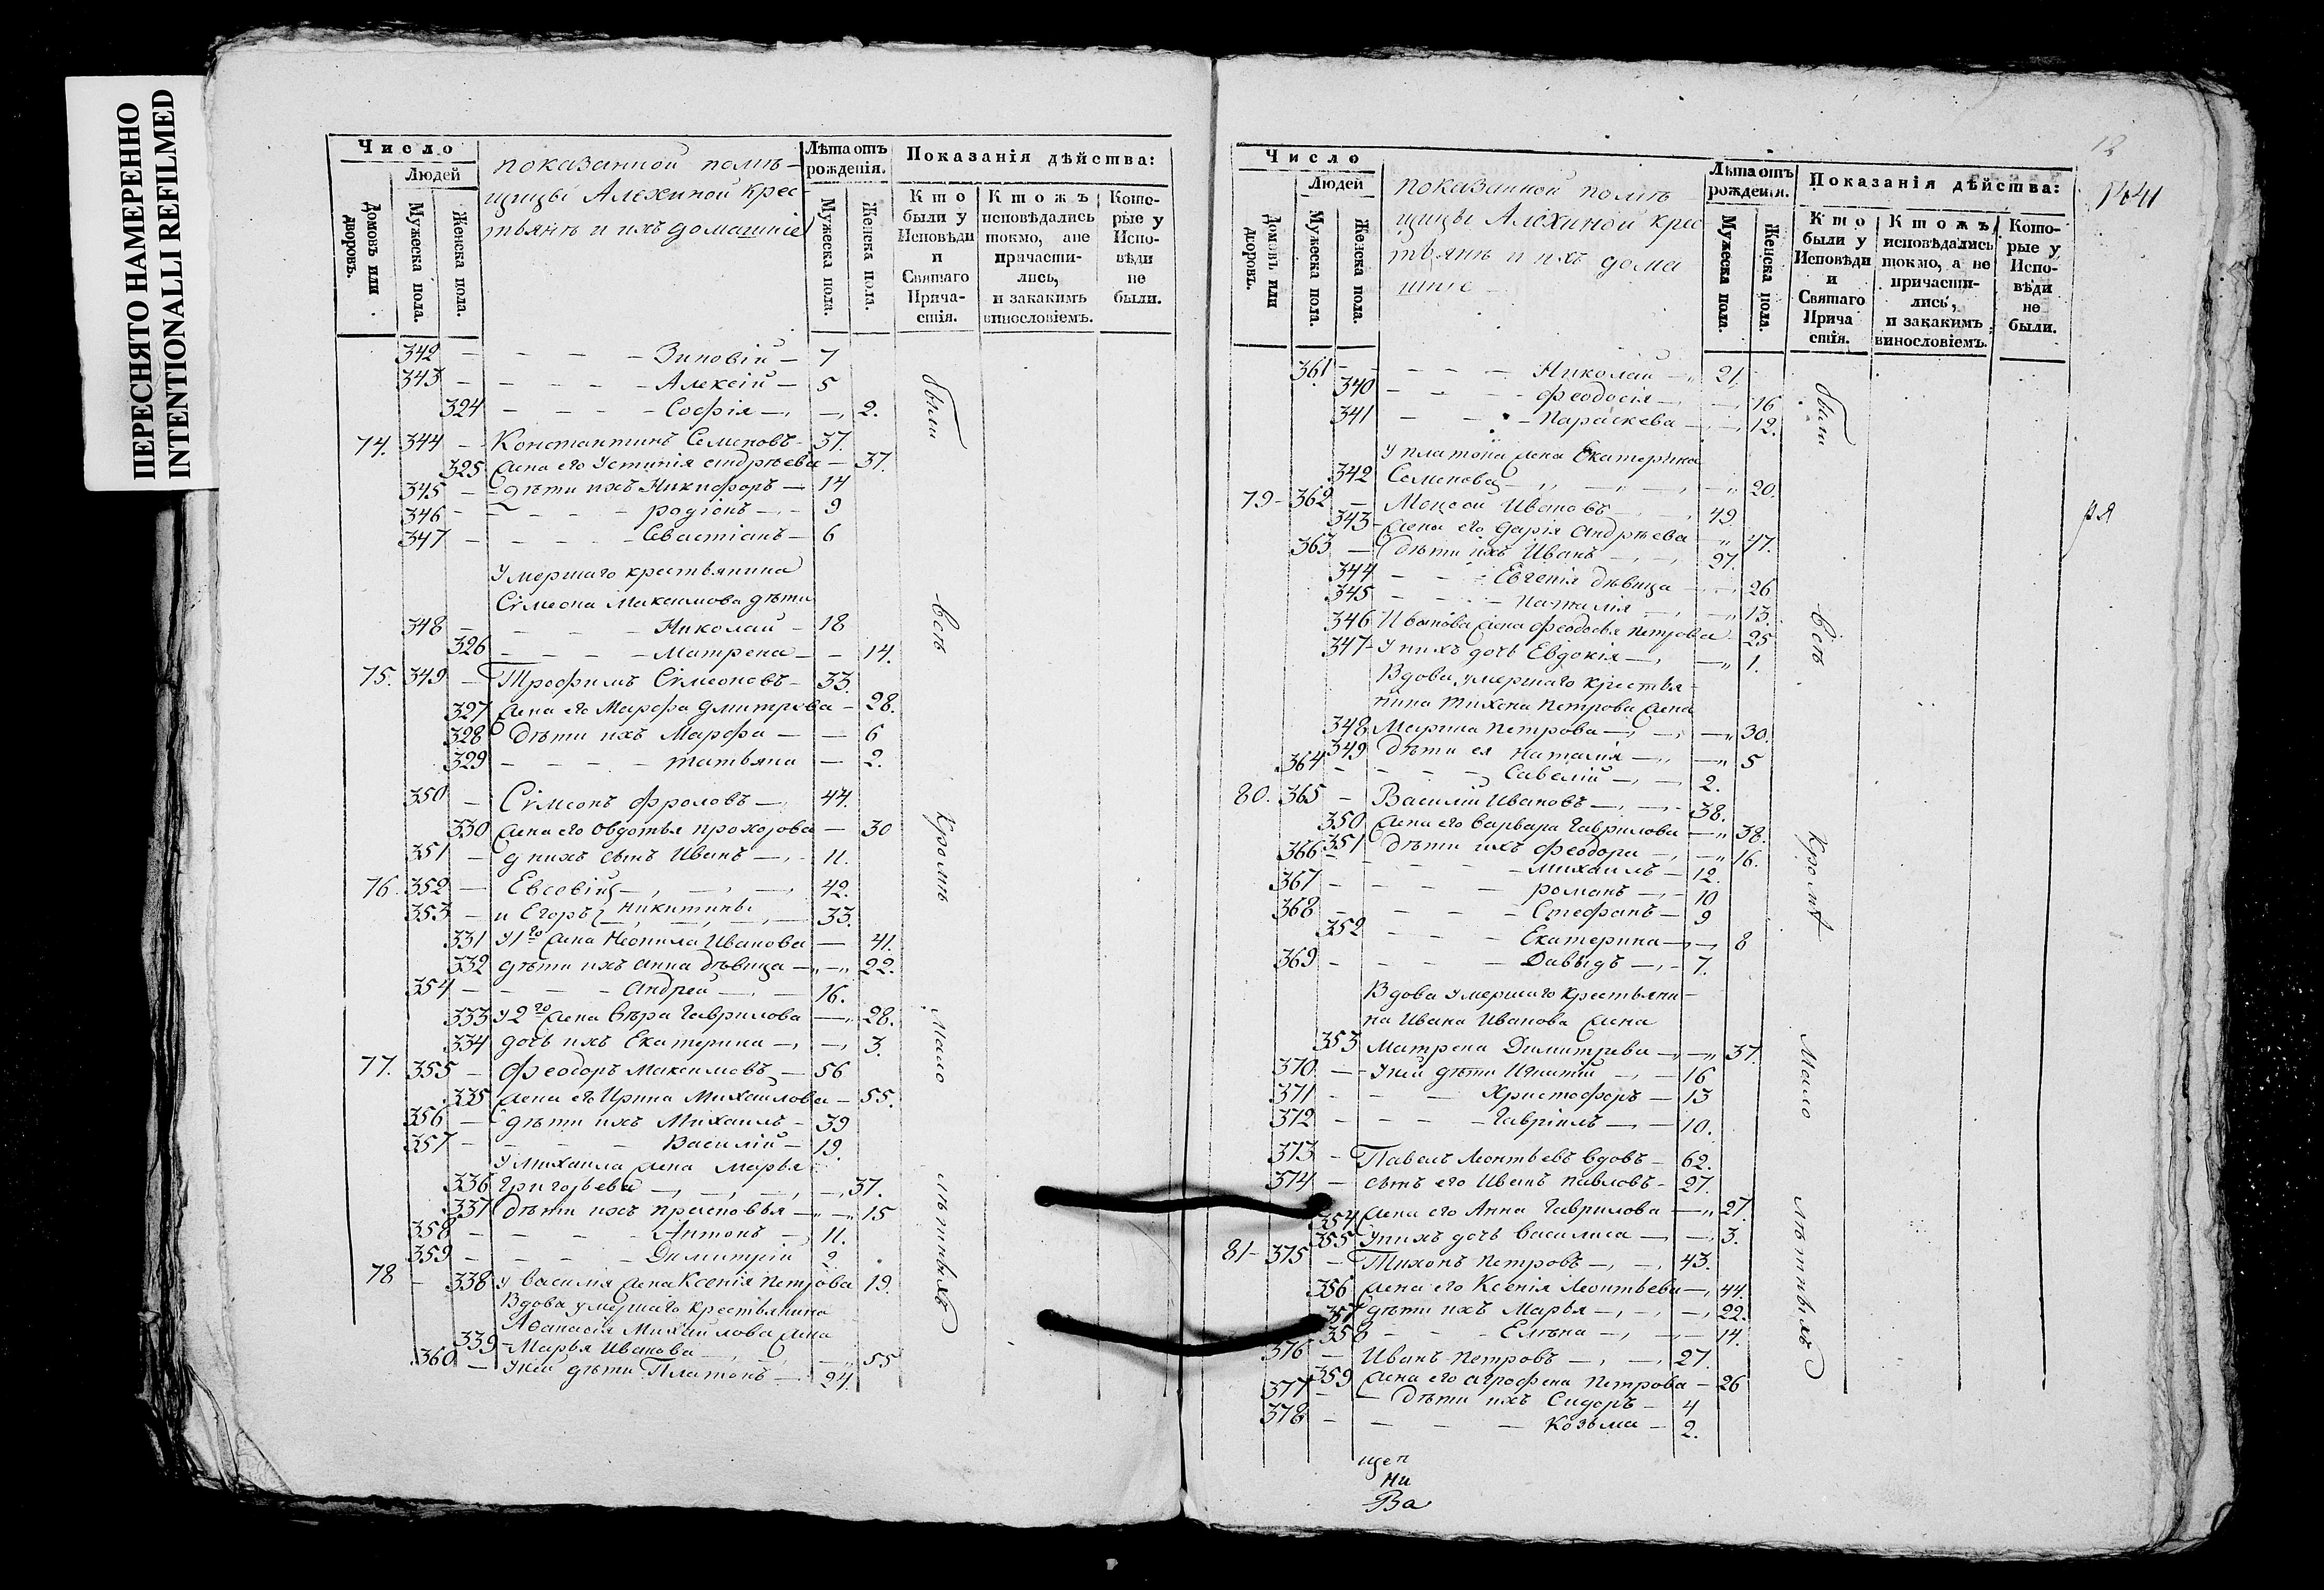 ПЕРЕСНЯТО НАМЕРЕННО
INTENTIONALLI REFILMED
Число
Людей
Домовъ или дворовъ.
Мужеска пола.
Женска пола.
показанной помѣ-
щицы Алехиной крес-
тьянъ и ихъ домашніе
Лѣта отъ рожденія.
Мужеска пола.
Женска пола.
Показанія дѣйства:
Кто были у Исповѣди и Святаго Прича-стія.
Ктожъ исповѣдались токмо, ане причасти-лись, и закакимъ винословіемъ.
Кото-рые у Испо-вѣди не были.
342 — — — — Зиновій — 7
343 — — — — Алексій — 5
324 — — — — Софія — — 2.
74. 344 — Константинъ Семеновъ — 37.
325 жена его Устинія Андрѣева — 37.
345 — дѣти ихъ Никифоръ — 14
346 — — — — родіонъ — 9
347 — — — — Севастіанъ — 6
Умершаго крестьянина
Сѵмеона Максимова дѣти
348 — — — — Николай — 18
326 — — — — Матрена — — 14.
75. 349 — Трофимъ Сѵмеоновъ — 33.
327 жена его Марфа Дмитрева — 28.
328 Дѣти ихъ Марфа — — 6
329 — — — — татьяна — 2.
350 — Сѵмеонъ Фроловъ — 44.
330 жена его Овдотья прохорова — 30
351 — у нихъ сынъ Иванъ — 11.
76. 352 — Евсевій — 42.
353 — и Егоръ Никитины — 33.
331 У 1го жена Неонила Иванова — 41.
332 дѣти ихъ анна дѣвица — 22.
354 — — — — Андрей — 16.
333 У 2го жена Вѣра Гаврилова — 28.
334 дочь ихъ Екатерина — 3.
77. 355 — Феодоръ Максимовъ — 56
335 жена его Ирина Михаилова — 55.
356 — дѣти ихъ Михаилъ — 39
357 — — — — Василій — 19.
У михаила жена Марья
336 Григорьева — 37.
337 Дѣти ихъ прасковья — 15
358 — — — — Антонъ — 11.
359 — — — — Димитрій 2.
78 — 338 У василія жена Ксенія Петрова 19.
Вдова умершаго крестьянина
Афанасія Михаилова жена
339 Марья Иванова — 55
360 — Уней дѣти Платонъ — 24.
были
всѣ
Кромѣ
мало
лѣтныхъ
Число
Людей
Домовъ или дворовъ.
Мужеска пола.
Женска пола.
показанной помѣ
щицы Алехиной крес
тьянъ и ихъ дома
шніе
Лѣта отъ рожденія.
Мужеска пола.
Женска пола.
Показанія дѣйства:
Кто были у Исповѣди и Святаго Прича стія.
Ктожъ исповѣдались токмо, а не причасти-лись, и закакимъ винословіемъ.
Кото-рые у Испо-вѣди не были.
12
1441
361 — — — — Николай — 21.
340 — — — — феодосія — 16
341 — — — — Параскева — 12.
У платона жена Екатерина
342 Семенова — 20.
79 — 362 — Моисей Ивановъ — 49.
343 жена его дарія Андрѣева — 47.
363 — Дѣти ихъ Иванъ — 27.
344 — — — Евгенія дѣвица — 26
345 — — — Наталія — 13.
346 Иванова жена феодосья петрова 25
347 У нихъ дочь Евдокія — 1.
Вдова умершаго крестья-
нина тихона петрова жена
348 Марина петрова — 30.
349 Дѣти ея Наталія — 5
364 — — — — Савелій — 2.
80. 365 — Василій Ивановъ — 38.
350 жена его варвара Гаврилова — 38.
351 дѣти ихъ феодора — 16.
366 — — — — михаилъ — 12.
367 — — — — романъ — 10
368 — — — — Стефанъ — 9
352 — — — — Екатерина — 8
369 — — — — Давыдъ — 7.
Вдова умершаго крестьяни-
на Ивана Иванова жена
353 Матрена Димитрева — 37.
370 — Уней дѣти Игнатій — 16
371 — — — — Христофоръ — 13
372 — — — — Гавріилъ — 10.
373 — Павелъ Леонтьевъ вдовъ — 62.
374 — сынъ его Иванъ павловъ — 27.
354 жена его Анна Гаврилова — 27.
355 Унихъ дочь Василиса — 3.
81 — 375 — Тихонъ Петровъ — 43.
356 жена его Ксенія Леонтьева — 44.
357 дѣти ихъ Марья — 22.
358 — — — Елѣна — 14.
376 — Иванъ Петровъ — 27.
359 жена его агрофена петрова — 26
377 — — Дѣти ихъ Сидоръ — 4
378 — — — — Козьма — 2.
были
всѣ
Кромѣ
мало
лѣтныхъ
ря
щен
Ни
Ва